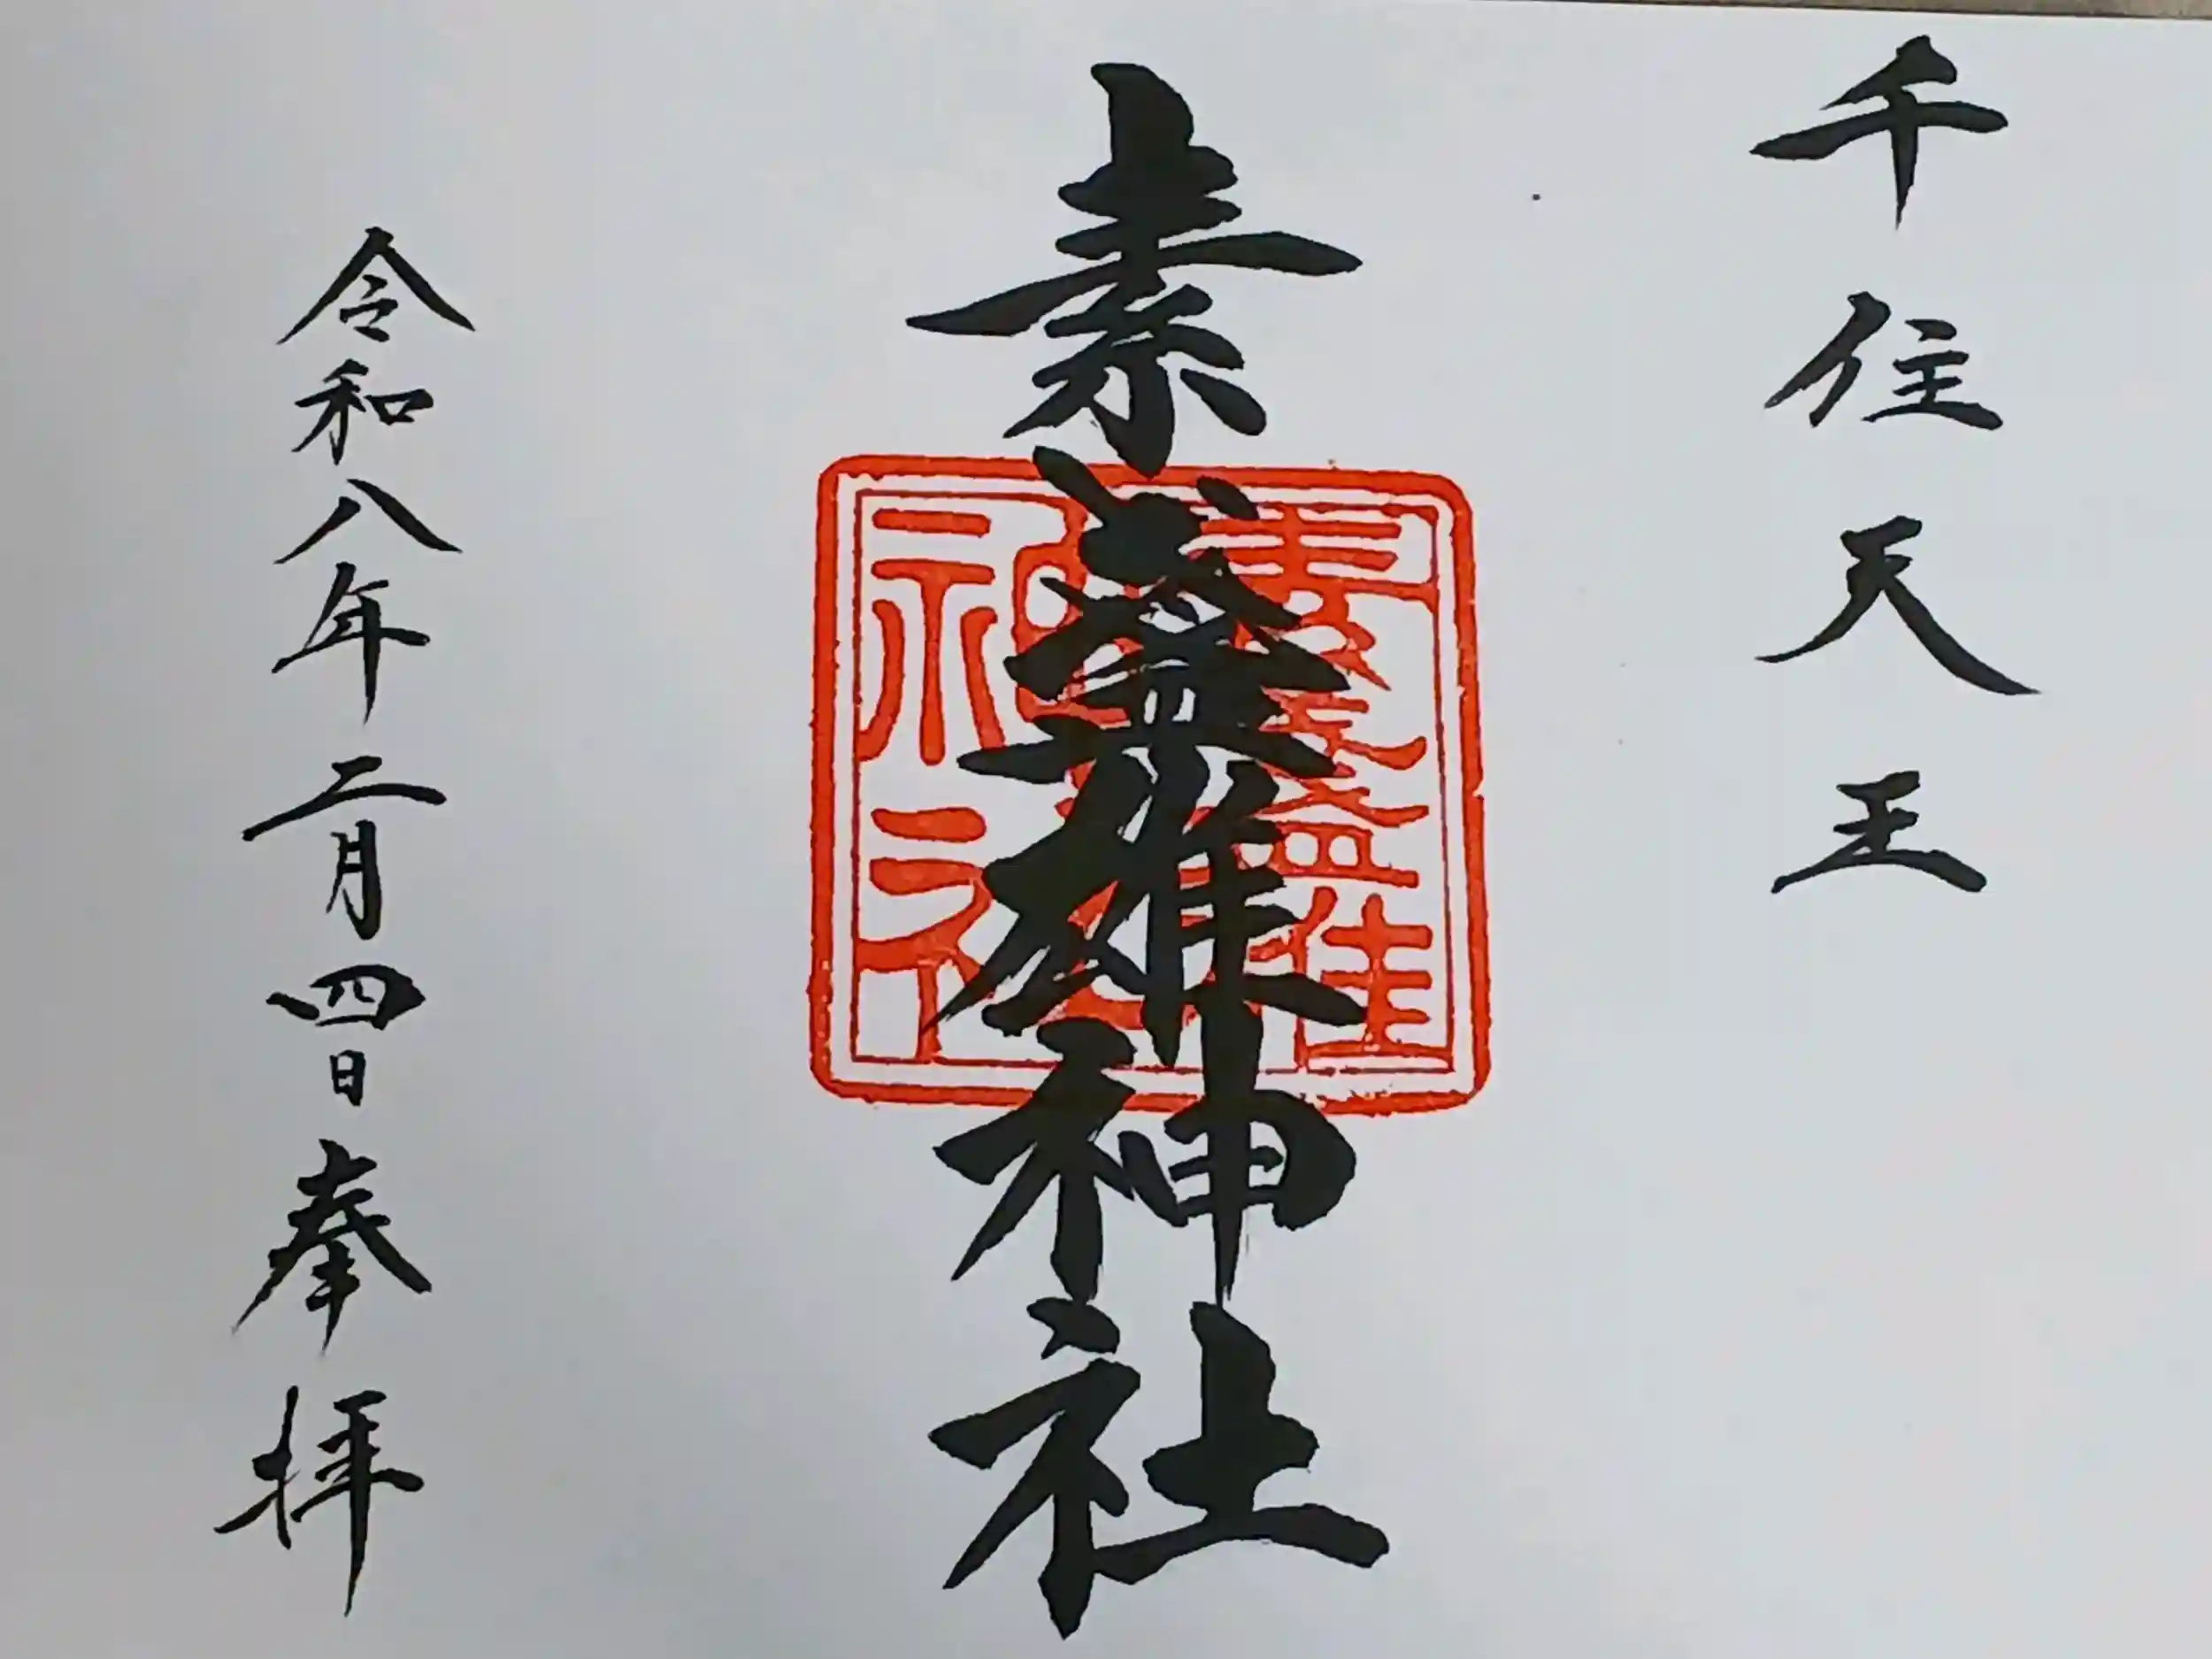 千住天王
素盞雄神社
素盞雄
神社
令和八年二月四日奉拝